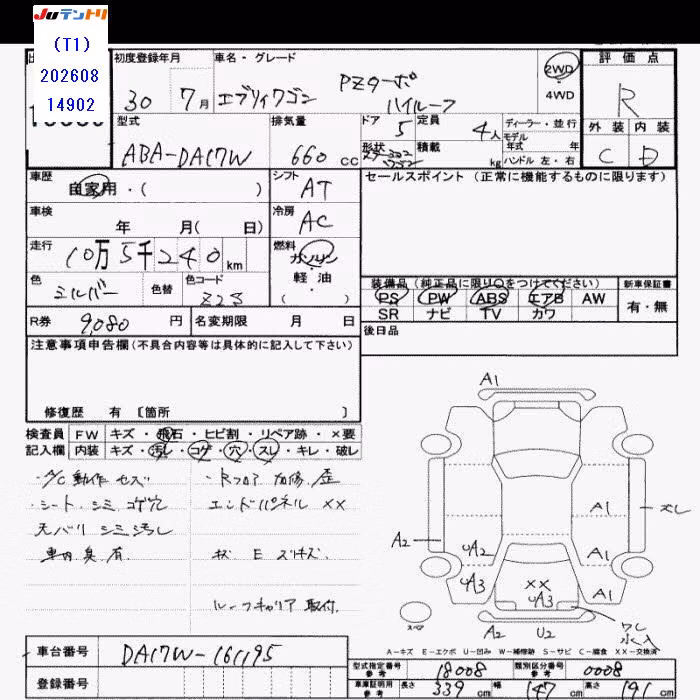 Juテントリ
(T1)
202608
14902
初度登録年月 車名・グレード 評価点
30 7月 エブリィワゴン PZターボ ハイルーフ 2WD 4WD R
型式 排気量 ドア 定員 ディーラー・並行 外装 内装
ABA-DA17W 660 cc 5 4人 モデル年式 年 C D
形状 積載 kg ハンドル 左・右
車歴 シフト セールスポイント (正常に機能するものに限ります)
自家用・( ) AT
車検 冷房
年 月( 日) AC
走行 燃料
10万5千240km ガソリン
色 色替 色コード 軽・油
シルバー Z2S (・)
装備品(純正品に限り○をつけてください) 新車保証書
PS PW ABS エアB AW 有・無
SR ナビ TV カワ
R券 9,080 円 名変期限 月 日 後日品
注意事項申告欄(不具合内容等は具体的に記入して下さい)
修復歴 有 〔箇所 〕
検査員 FW キズ・飛石・ヒビ割・リペア跡・×要
記入欄 内装 キズ・汚レ・コゲ・穴・スレ・キレ・破レ
・A/C動作セズ ・Rフロア 加修、歪
・シート、シミ コゲ穴 エンドパネル ××
天バリ シミ汚レ
車内臭有
ルーフキャリア取付
A1
A1
A2
A1
UA2
UA3
A1
××
UA3
スペア
A2 U2
A-キズ E-エクボ U-凹み W-補修跡 S-サビ C-腐食 XX-交換済
車台番号 DA17W-161195
登録番号
型式指定番号 参考 18008 類別区分番号 参考 0008
車庫証明用 参考 長さ 339 cm 幅 147 cm 高さ 191 cm